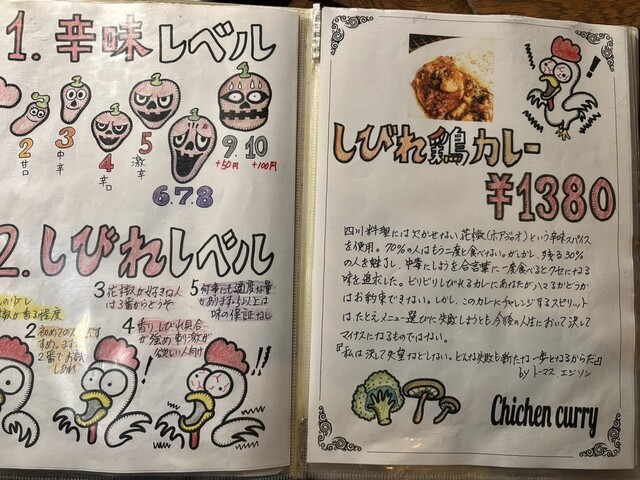 1. 辛味レベル
2 甘口
3 中辛
4 辛口
5 激辛
6.7.8
9. +50円
10 +100円
2. しびれレベル
2 初めての
2番でお試
3 花椒が好きな人
は3番からどうぞ
4 香り、しびれ具合
が強め 刺激が
欲しい人向け
5 何事にも適度な量
があります。これ以上は
味の保証なし
しびれ鶏カレー
¥1380
四川料理には欠かせない花椒(ホアジャオ)という辛味スパイス
を使用。70%の人はもう二度と食べない。がしかし、残る30%
の人を魅了し、中毒にしようを合言葉に一度食べるとクセになる
味を追求した。ビリビリしびれるカレーにあなたがハマるかどうか
はお約束できない。しかし、このカレーにチャレンジするスピリット
は、たとえメニュー選びに失敗しようとも今後の人生において決して
マイナスになるものではない。
『私は決して失望などしない。どんな失敗も新たな一歩となるからだ』
by トーマス エジソン
Chichen curry